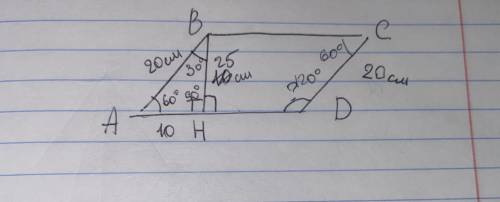 B C
20см 30° 25 60°
см 20см
60° 90° 120°
A 10 H D